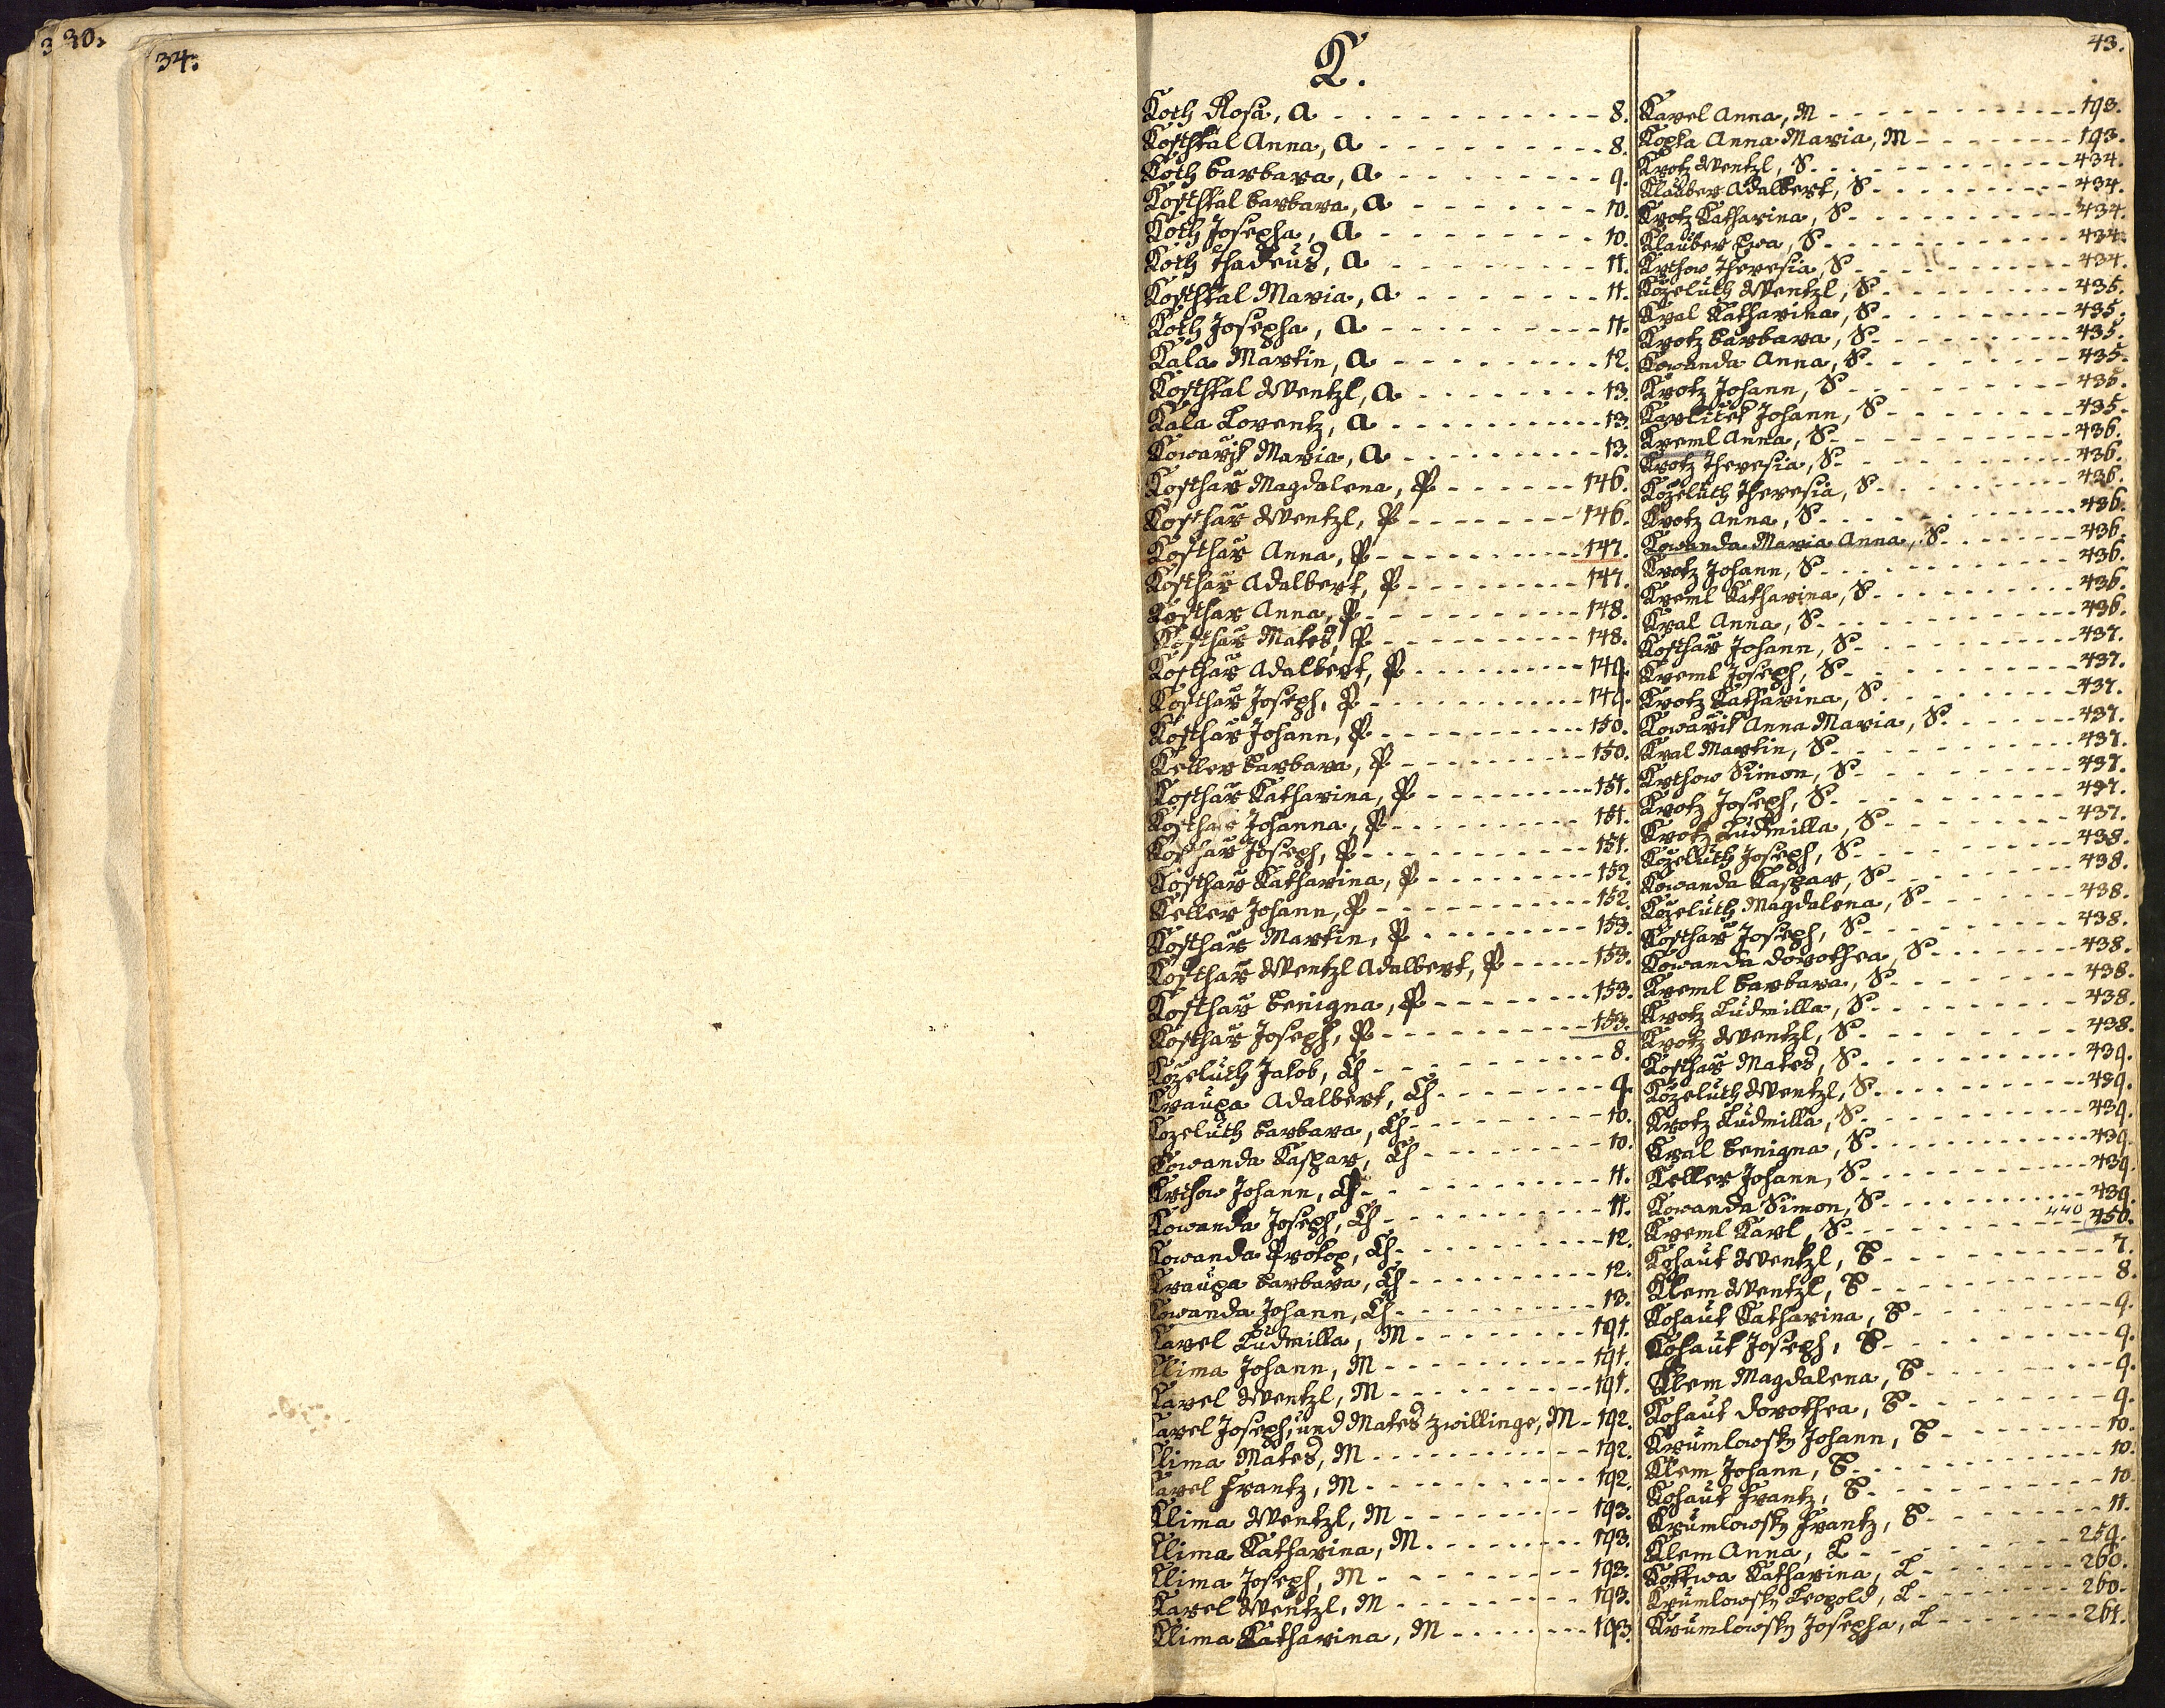 3
30.
34.
K.
43.
Koth Rosa, A 8.
Kosthkal Anna, A 8.
Koth Barbara, A 9.
Kosthkal Barbara, A 10.
Koth Josepha, A 10.
Koth Thadeus, A 11.
Kosthkal Maria, A 11.
Koth Josepha, A 11.
Kala Martin, A 12.
Kosthkal Wentzl, A 13.
Kala Lorentz, A 13.
Kowařjk Maria, A 13.
Kosthař Magdalena, P 146.
Kosthař Wentzl, P 146.
Kosthař Anna, P 147.
Kosthař Adalbert, P 147.
Kosthař Anna, P 148.
Kosthař Mates, P 148.
Kosthař Adalbert, P 149.
Kosthař Joseph, P 149.
Kosthař Johann, P 150.
Keller Barbara, P 150.
Kosthař Katharina, P 151.
Kosthař Johanna, P 151.
Kosthař Joseph, P 151.
Kosthař Katharina, P 152.
Keller Johann, P 152.
Kosthař Martin, P 153.
Kosthař Wentzl Adalbert, P 153.
Kosthař Benigna, P 153.
Kosthař Joseph, P 153.
Kozeluth Jakob, Ch 8.
Kraupa Adalbert, Ch 9.
Kozeluth Barbara, Ch 10.
Kowanda Kaspar, Ch 10.
Krthow Johann, Ch 11.
Kowanda Joseph, Ch 11.
Kowanda Prokop, Ch 12.
Kraupa Barbara, Ch 12.
Kowanda Johann, Ch 13.
Karel Ludmilla, M 191.
Klima Johann, M 191.
Karel Wentzl, M 191.
Karel Joseph, und Mates Zwillinge, M 192.
Klima Mates, M 192.
Karel Frantz, M 192.
Klima Wentzl, M 193.
Klima Katharina, M 193.
Klima Joseph, M 193.
Karel Wentzl, M 193.
Klima Katharina, M 193.
Karel Anna, M 193.
Kopta Anna Maria, M 193.
Krotz Wentzl, S 434.
Klauber Adalbert, S 434.
Krotz Katharina, S 434.
Klauber Ewa, S 434.
Krthow Theresia, S 434.
Kozeluth Wentzl, S 435.
Kral Katharina, S 435.
Krotz Barbara, S 435.
Kowanda Anna, S 435.
Krotz Johann, S 435.
Karlicek Johann, S 435.
Kreml Anna, S 436.
Krotz Theresia, S 436.
Kozeluth Theresia, S 436.
Krotz Anna, S 436.
Kowanda Maria Anna, S 436.
Krotz Johann, S 436.
Kreml Katharina, S 436.
Kral Anna, S 436.
Kosthař Johann, S 437.
Kreml Joseph, S 437.
Krotz Katharina, S 437.
Kowařik Anna Maria, S 437.
Kral Martin, S 437.
Krthow Simon, S 437.
Krotz Joseph, S 437.
Krotz Ludmilla, S 437.
Kozeluth Joseph, S 438.
Kowanda Kaspar, S 438.
Kozeluth Magdalena, S 438.
Kosthař Joseph, S 438.
Kowanda Dorothea, S 438.
Kreml Barbara, S 438.
Krotz Ludmilla, S 438.
Krotz Wentzl, S 438.
Kosthař Mates, S 439.
Kozeluth Wentzl, S 439.
Krotz Ludmilla, S 439.
Kral Benigna, S 439.
Keller Johann, S 439.
Kowanda Simon, S 439.
Kreml Karl, S 440 450.
Kohaut Wentzl, B 7.
Klem Wentzl, B 8.
Kohaut Katharina, B 9.
Kohaut Joseph, B 9.
Klem Magdalena, B 9.
Kohaut Dorothea, B 9.
Krumlowsky Johann, B 10.
Klem Johann, B 10.
Kohaut Frantz, B 10.
Krumlowsky Frantz, B 11.
Klem Anna, L 259.
Kottwa Katharina, L 260.
Krumlowsky Leopold, L 260.
Krumlowsky Josepha, L 261.